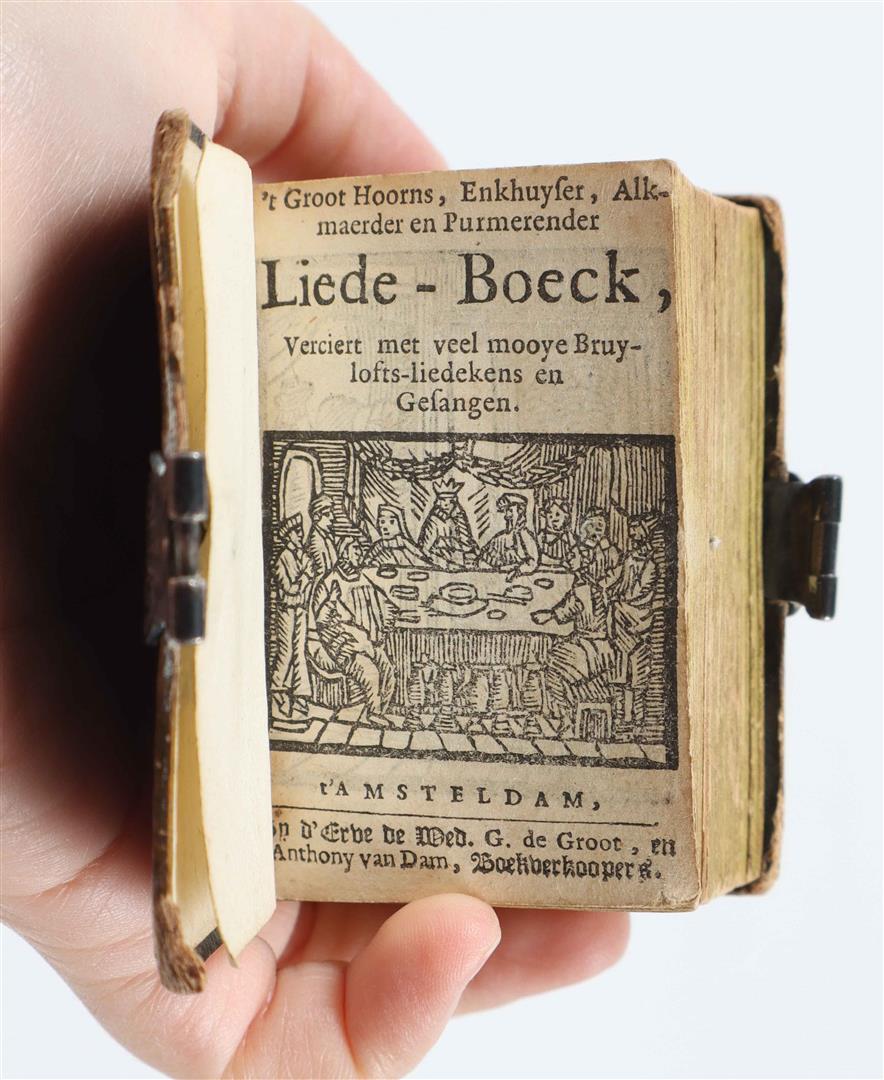 't Groot Hoorns, Enkhuyſer, Alk-
maerder en Purmerender
Liede - Boeck,
Verciert met veel mooye Bruy-
lofts-liedekens en
Geſangen.
t'AMSTELDAM,
By d'Erve de Wed. G. de Groot, en
Anthony van Dam, Boekverkoopers.